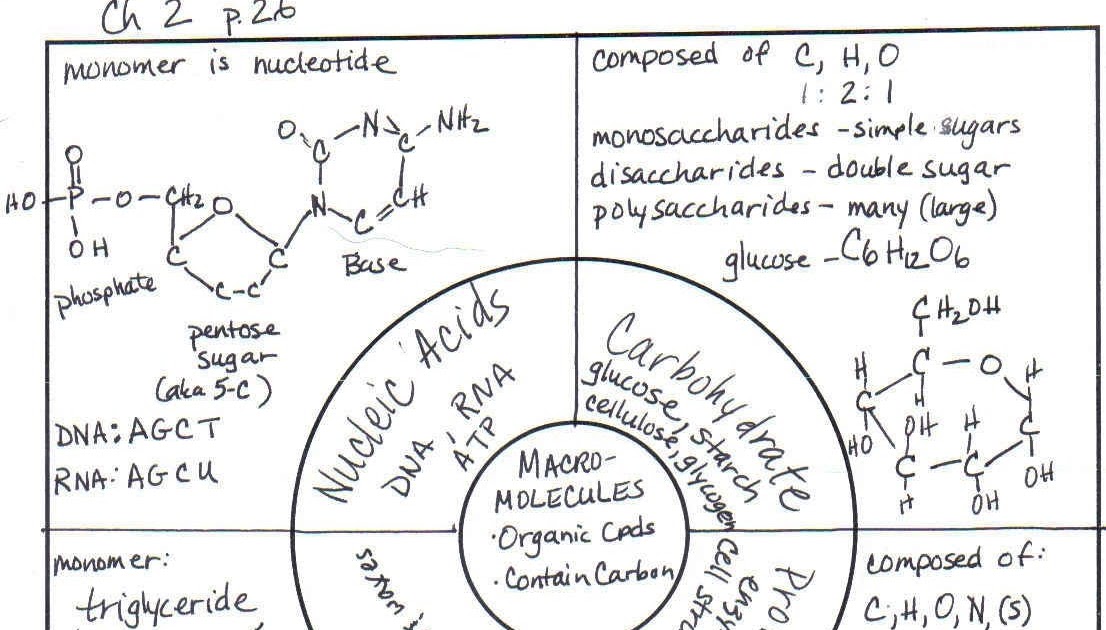 Ch 2 p.26
monomer is nucleotide
O
C
N
C
NH2
O
HO
P
O
CH2
O
N
C
CH
OH
C
C
C-C
Base
phosphate
pentose
sugar
(aka 5-C)
DNA: AGCT
RNA: AGCU
composed of C, H, O
1:2:1
monosaccharides - simple sugars
disaccharides - double sugar
polysaccharides - many (large)
glucose - C6H12O6
CH2OH
H
C
O
H
C
H
C
HO
OH
H
C
C
OH
H
OH
Nucleic Acids
DNA, RNA
ATP
Carbohydrate
glucose, starch
cellulose, glycogen
MACRO-
MOLECULES
·Organic Cpds
·Contain Carbon
monomer:
triglyceride
waxes
Pro
enzy
cell stru
composed of:
C, H, O, N, (S)